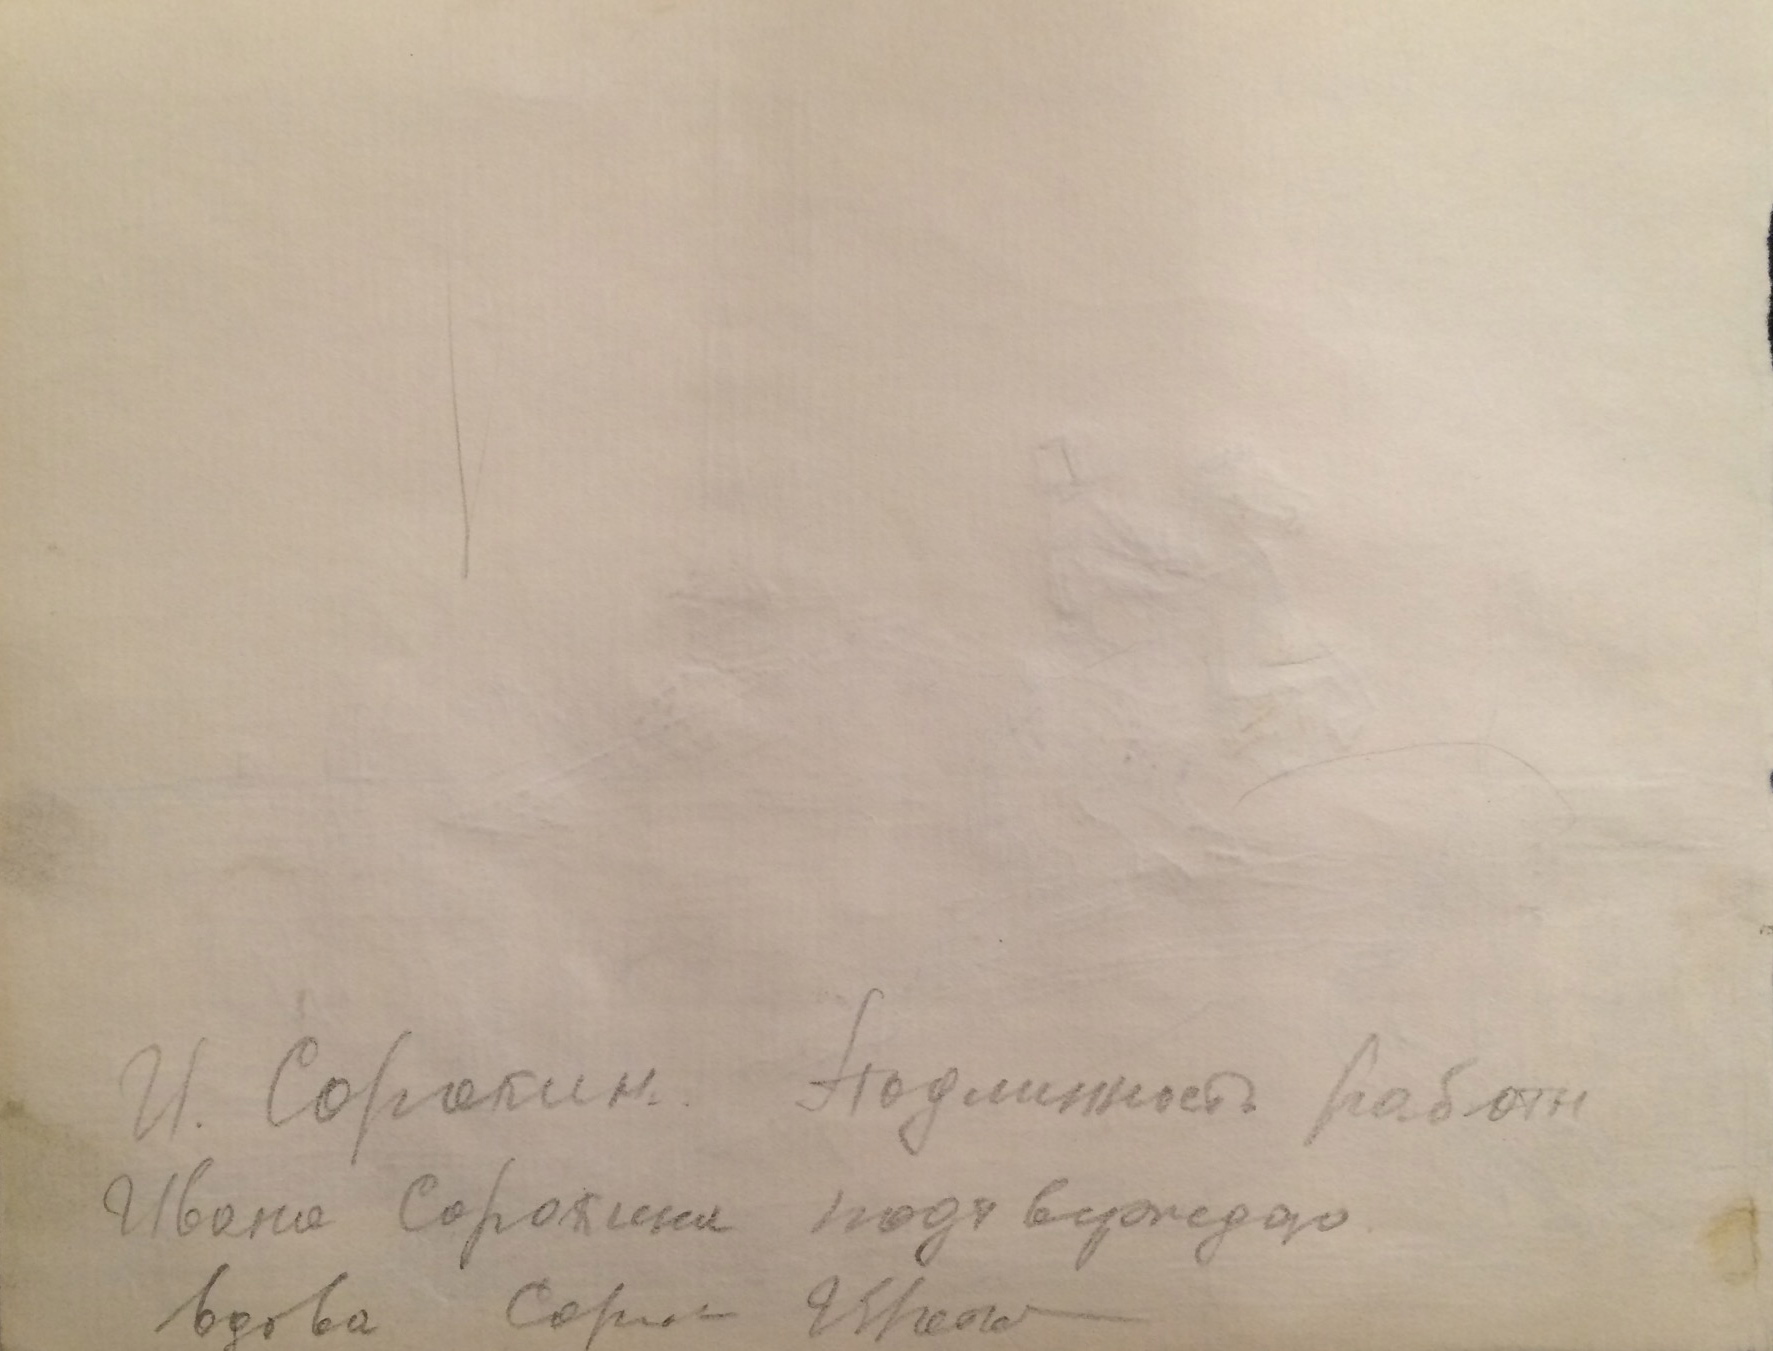 И. Сорокин. Подлинность работы
Ивана Сорокина подтверждаю
вдова